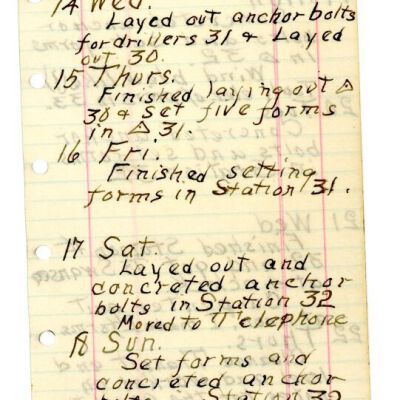 14 Wed.
Layed out anchor bolts
for drillers 31 & Layed
out 30.
15 Thurs.
Finished laying out △
30 & set five forms
in △ 31.
16 Fri.
Finished setting
forms in Station 31.
17 Sat.
Layed out and
concreted anchor
bolts in Station 32
Moved to Telephone
18 Sun.
Set forms and
concreted anchor
bolts Station 32